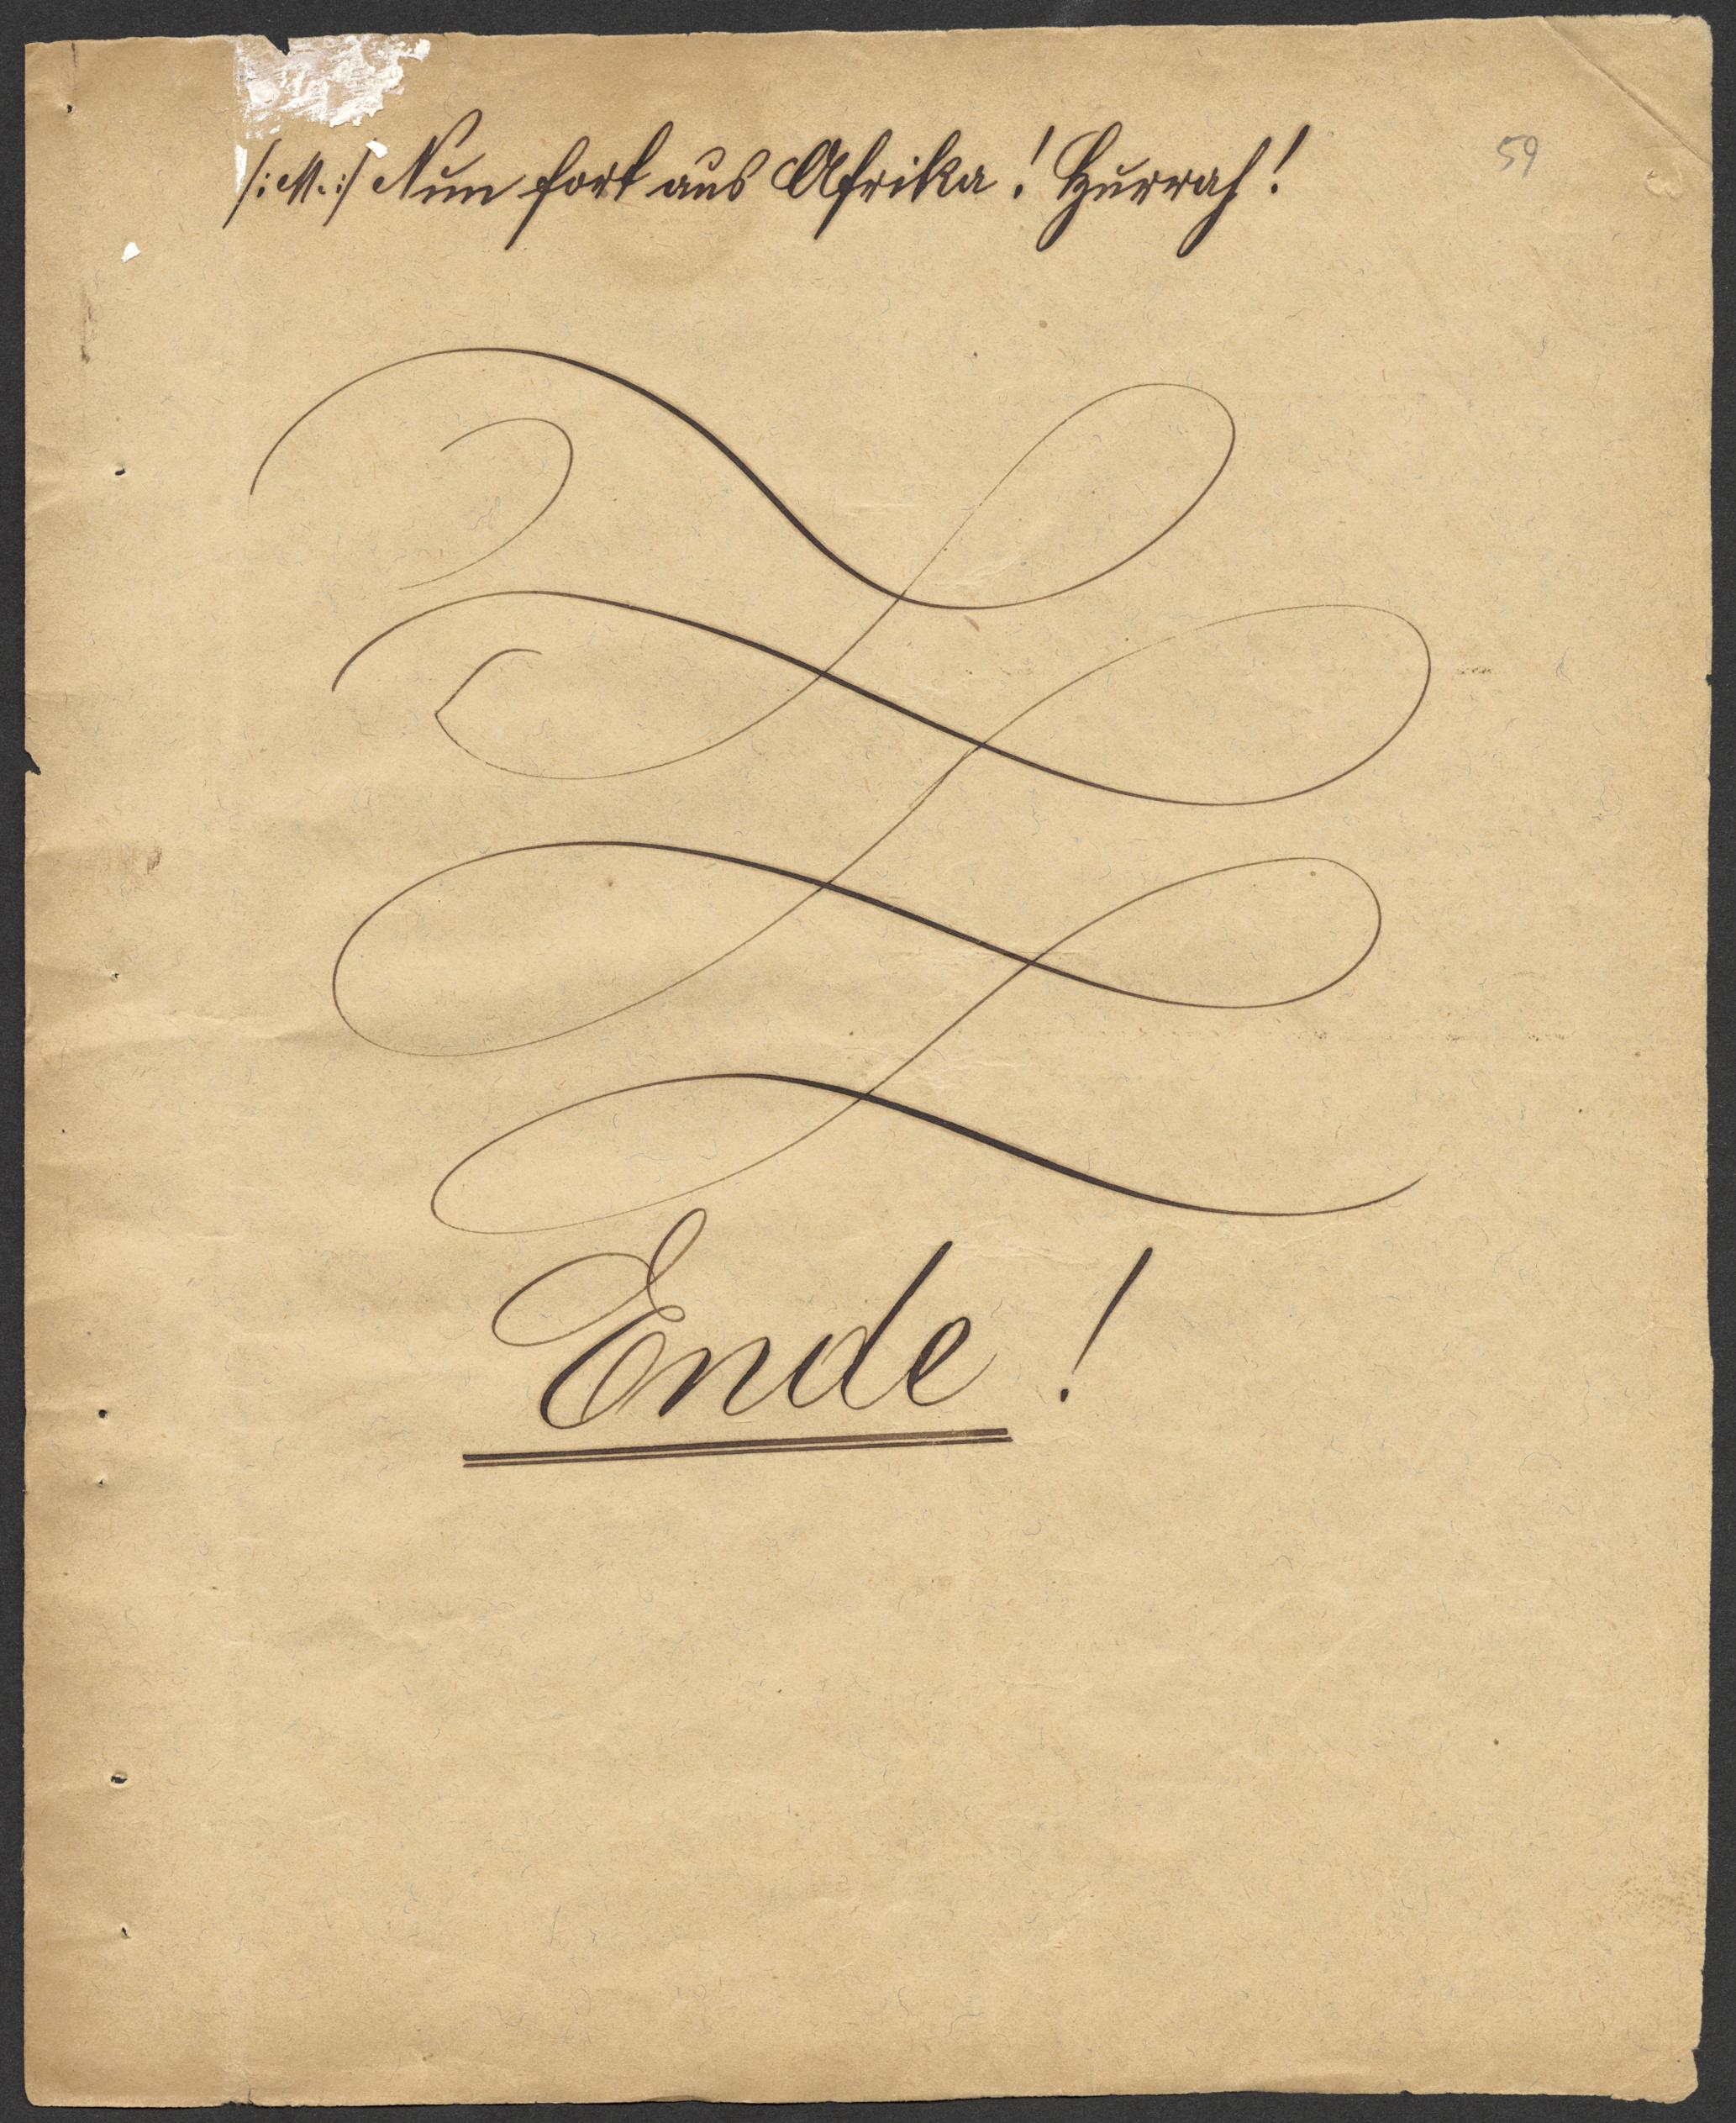 /: M. :/ Nun fort aus Afrika! Hurrah!
59
Ende!